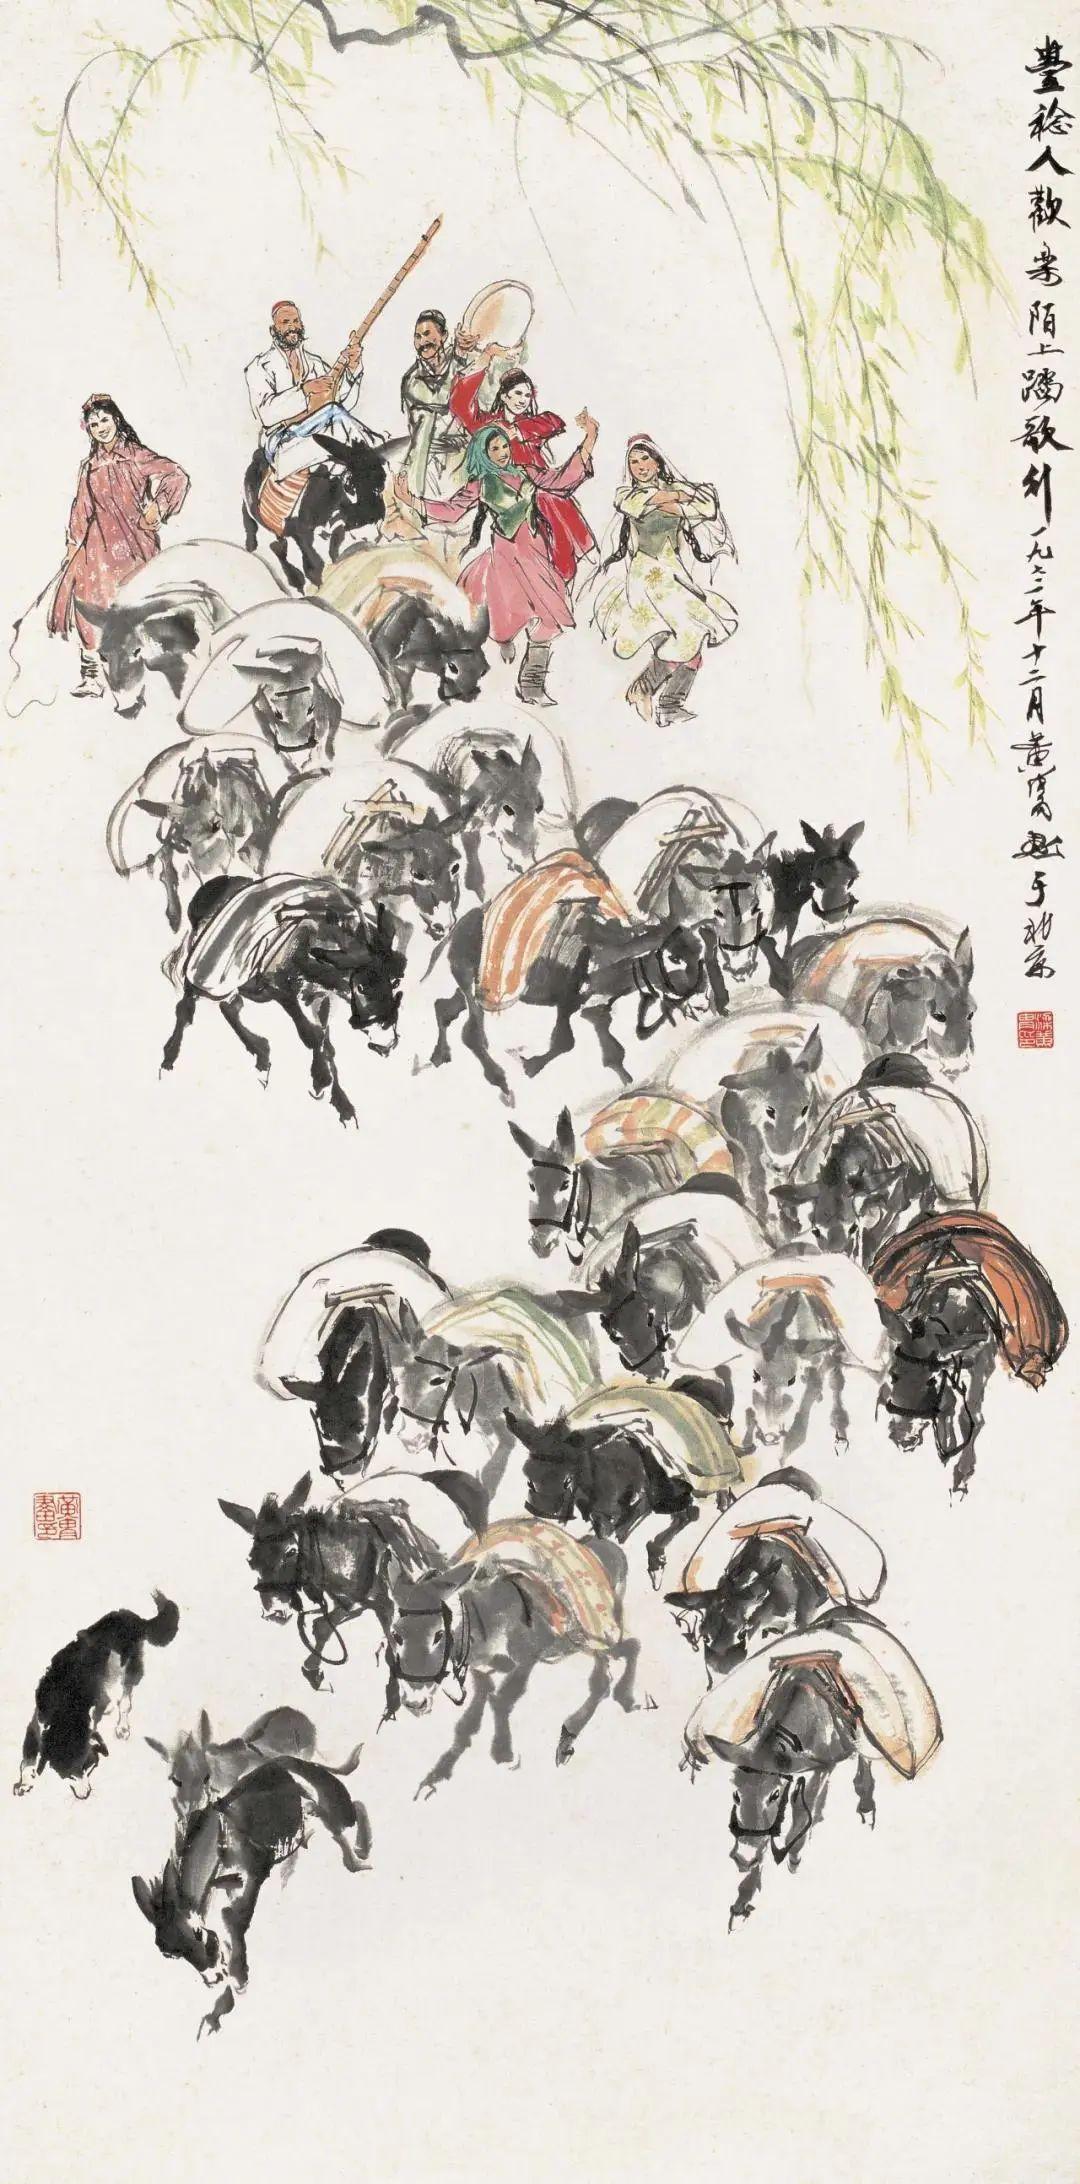 豐稔人歡樂陌上踏歌行一九七二年十二月黄胄畫于北京
梁黄胄印